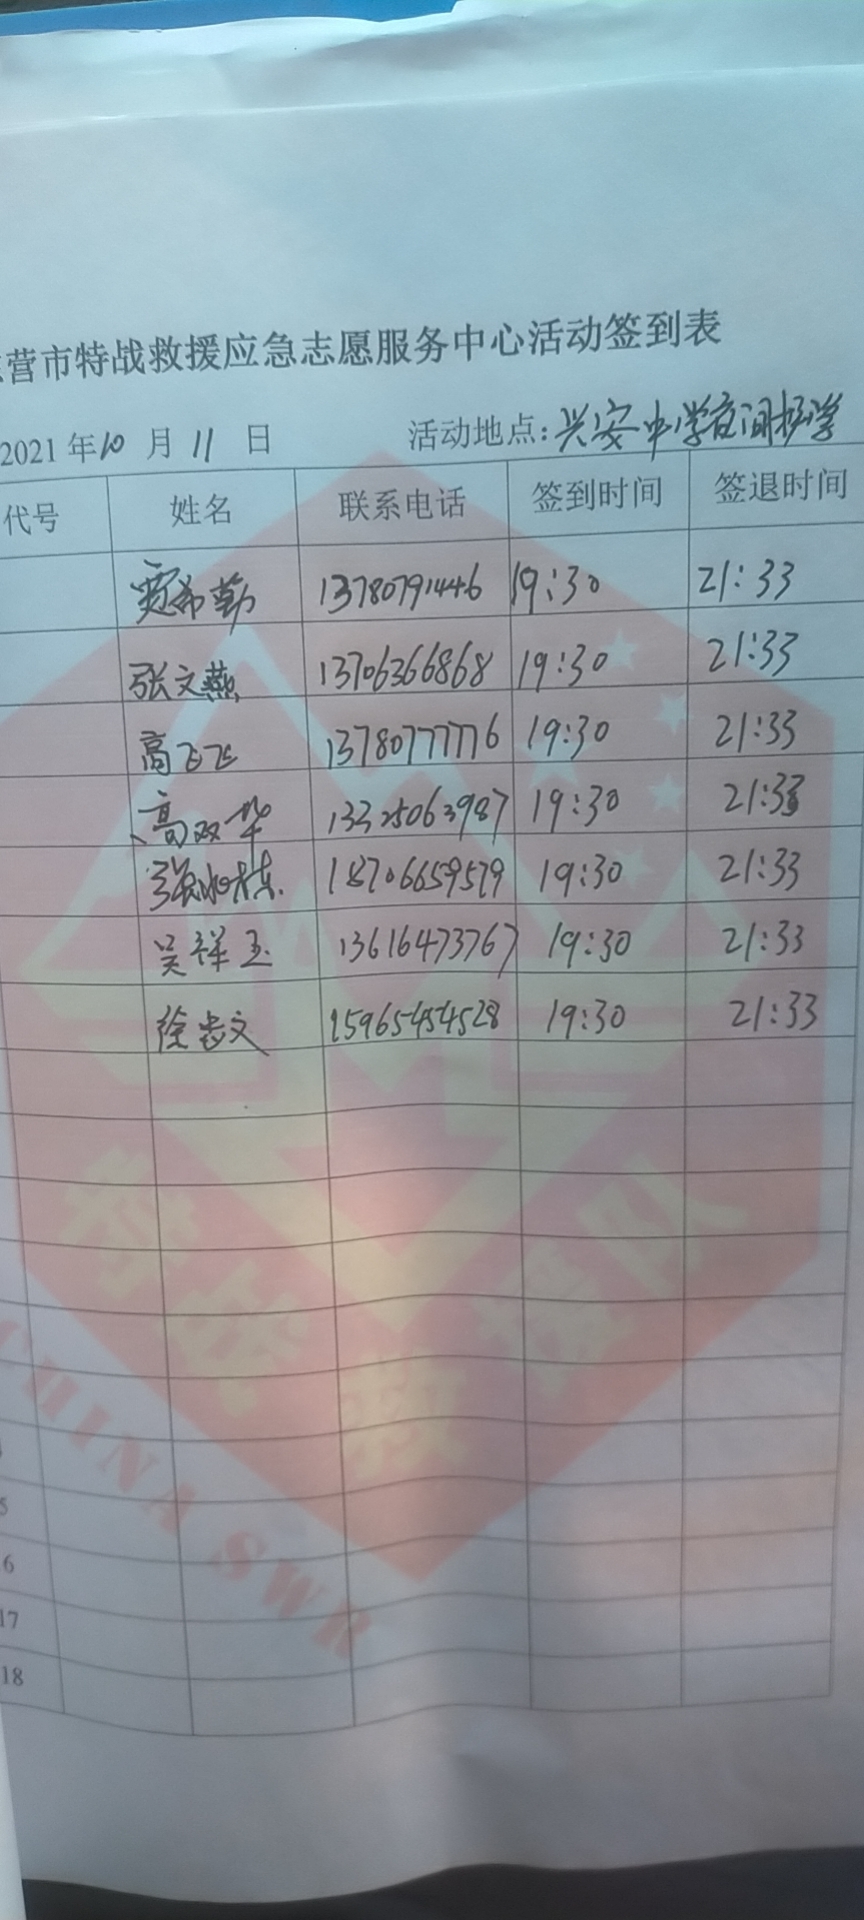 营市特战救援应急志愿服务中心活动签到表
2021 年10 月 11 日 活动地点:兴安中学夜间护学
代号 姓名 联系电话 签到时间 签退时间
贾希勤 13780791446 19:30 21:33
张文燕 13706366868 19:30 21:33
高飞飞 13780777776 19:30 21:33
高双华 13325063987 19:30 21:33
张 18706659579 19:30 21:33
吴祥玉 13616473767 19:30 21:33
徐忠文 15965454528 19:30 21:33
特战救援队
CHINA SWR
5
16
17
18